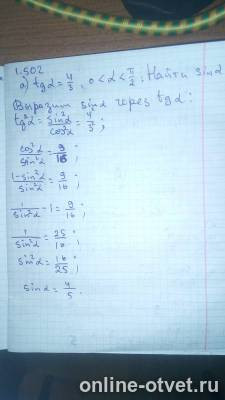 1.502
а) tgα = 4/3, 0 < α < π/2; Найти sinα
Выразим sinα через tgα:
tg²α = sin²α/cos²α = 4/3;
cos²α/sin²α = 9/16;
1-sin²α/sin²α = 9/16;
1/sin²α - 1 = 9/16;
1/sin²α = 25/16;
sin²α = 16/25;
sinα = 4/5.
online-otvet.ru